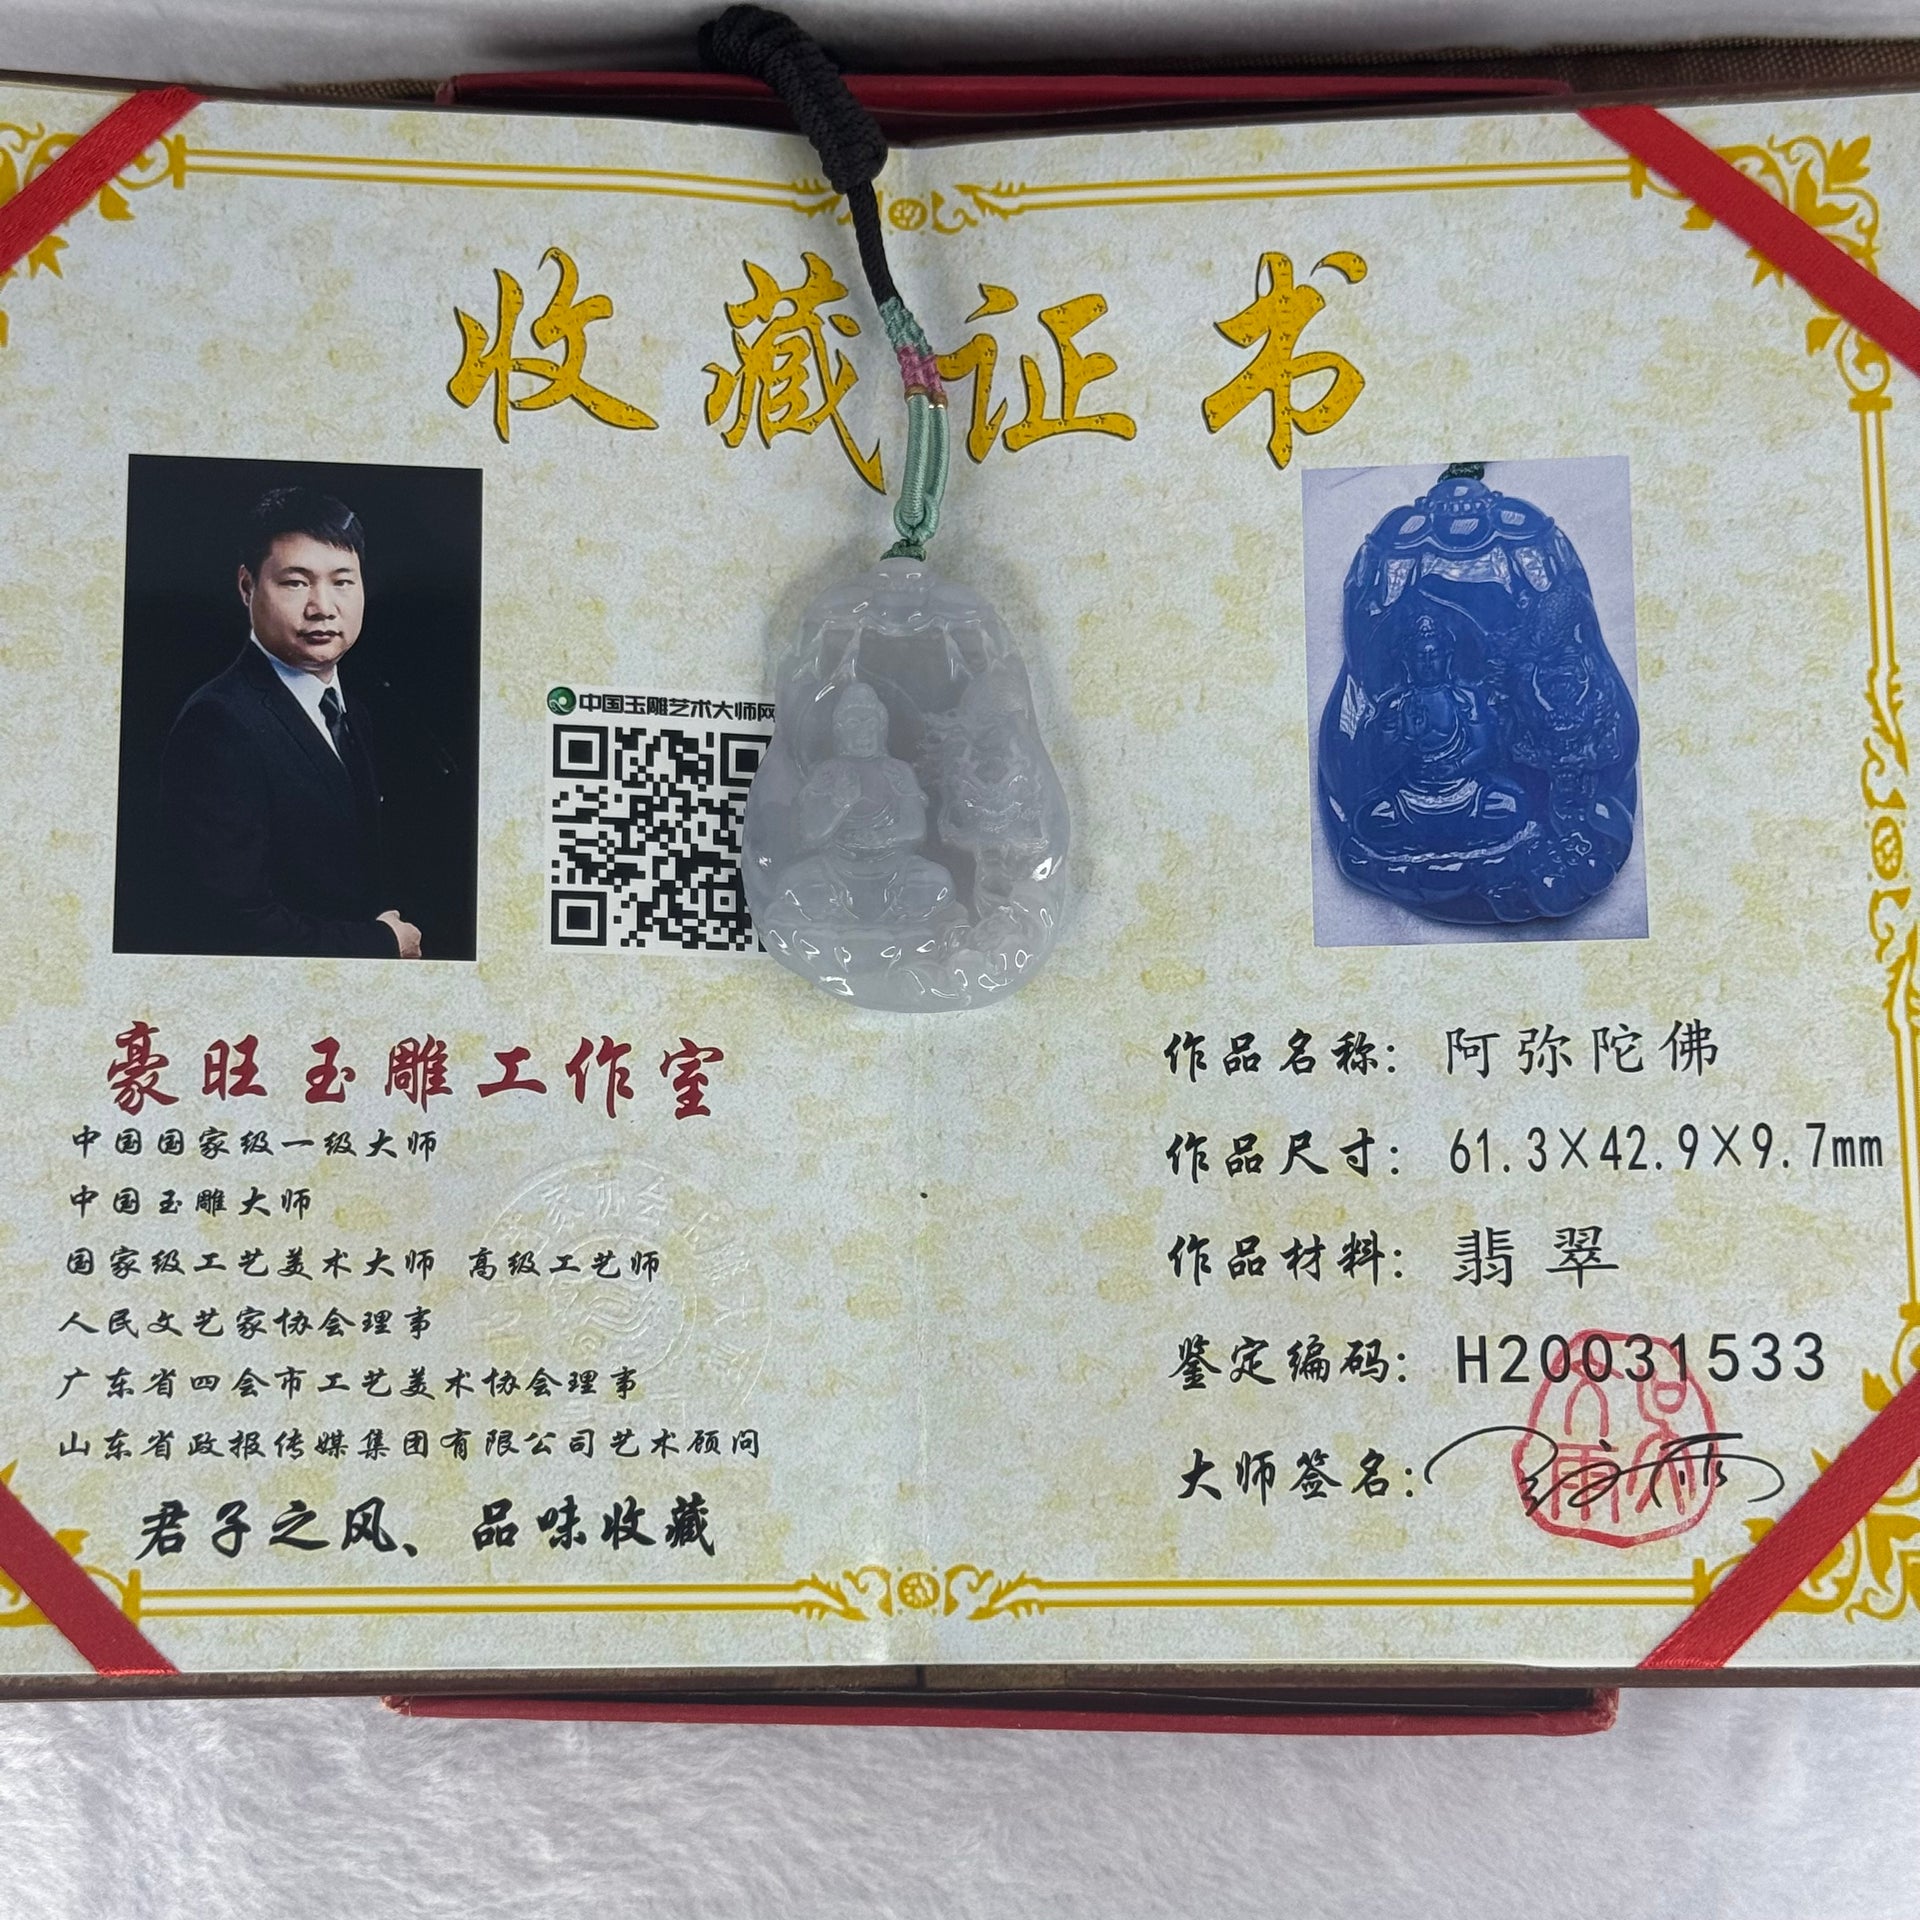 收藏证书
中国玉雕艺术大师网
豪旺玉雕工作室
中国国家级一级大师
中国玉雕大师
国家级工艺美术大师 高级工艺师
人民文艺家协会理事
广东省四会市工艺美术协会理事
山东省政报传媒集团有限公司艺术顾问
君子之风、品味收藏
作品名称: 阿弥陀佛
作品尺寸: 61.3×42.9×9.7mm
作品材料: 翡翠
鉴定编码: H20031533
大师签名: